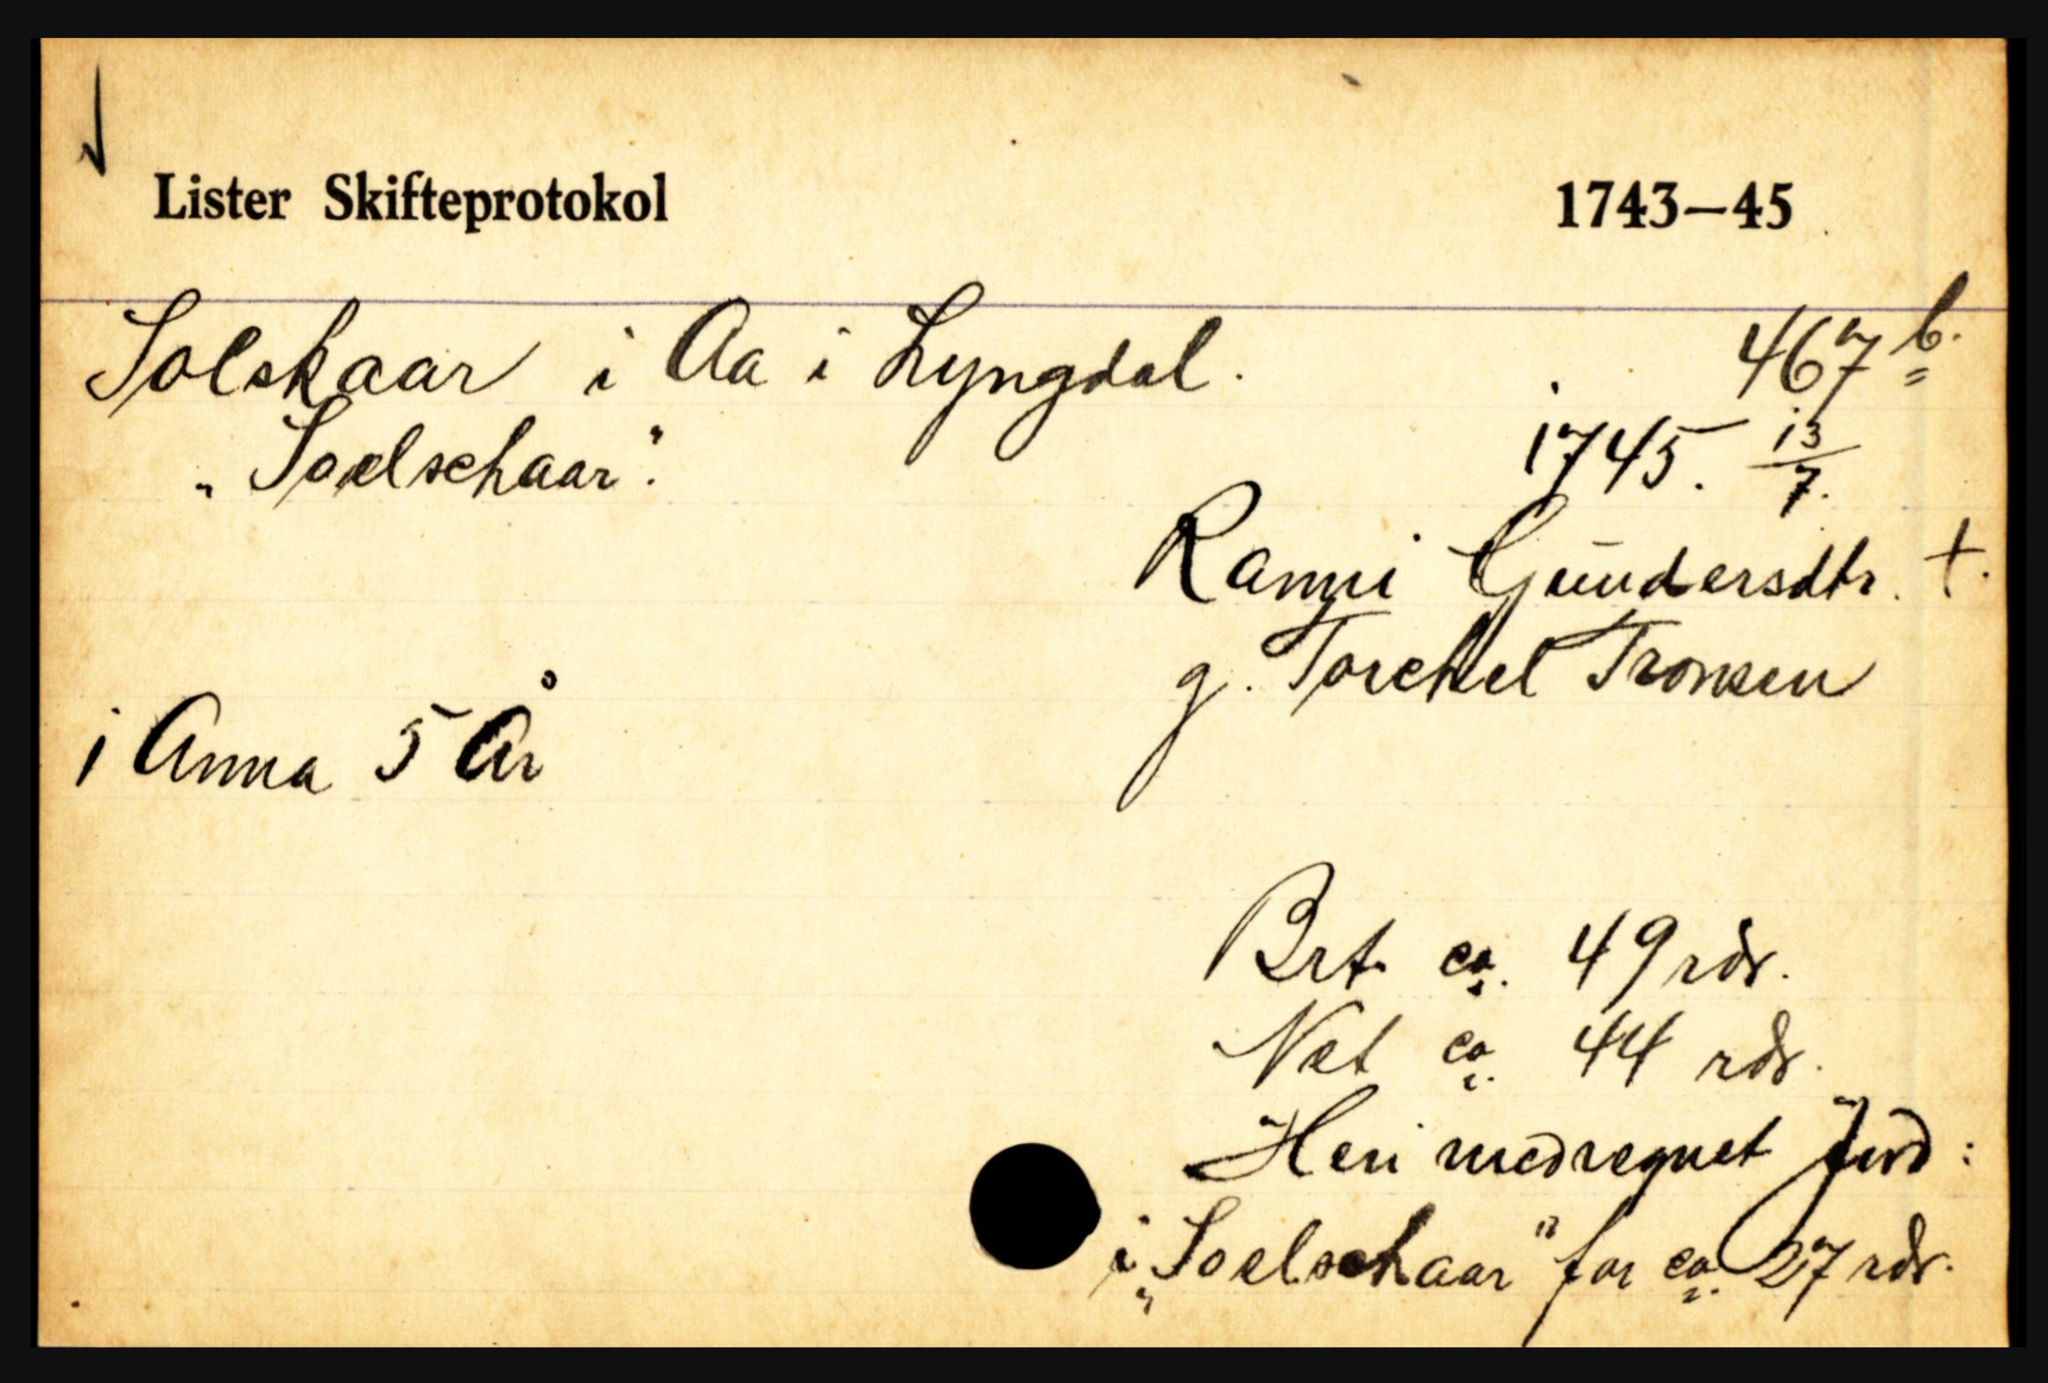 Lister Skifteprotokol 1743–45
Solskaar i Aa i Lyngdal. 467 b.
„Soelschaar". 1745. 13/7.
Ranni Gundersdtr. +.
g. Torchel Tronsen
1 Anna 5 År
Brt. ca. 49 rdr.
Net ca. 44 rdr.
Heri medregnet Jord:
i „Soelschaar" for ca. 27 rdr.